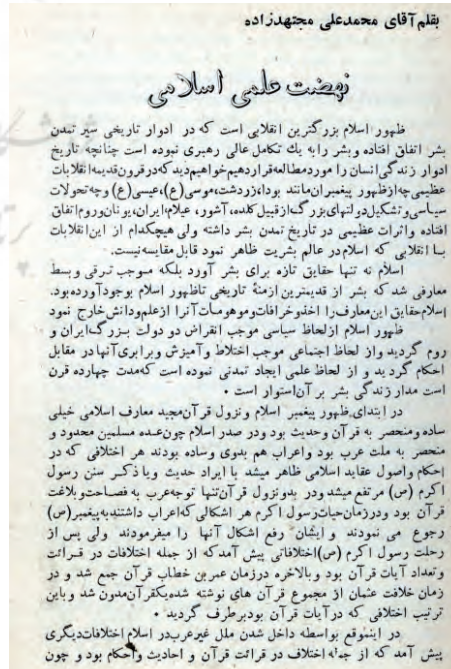 بقلم آقای محمدعلی مجتهدزاده
نهضت علمی اسلامی
ظهور اسلام بزرگترین انقلابی است که در ادوار تاریخی سیر تمدن
بشر اتفاق افتاده و بشر را به یك تکامل عالی رهبری نموده است چنانچه تاریخ
ادوار زندگی انسان را مورد مطالعه قرار دهیم خواهیم دید که در قرون قدیمه انقلابات
عظیمی چه از ظهور پیغمبران مانند بودا، زردشت، موسی (ع)، عیسی (ع) و چه تحولات
سیاسی و تشکیل دولتهای بزرگ از قبیل کلده، آشور، عیلام، ایران، یونان و روم اتفاق
افتاده و اثرات عظیمی در تاریخ تمدن بشر داشته ولی هیچکدام از این انقلابات
با انقلابی که اسلام در عالم بشریت ظاهر نمود قابل مقایسه نیست.
اسلام نه تنها حقایق تازه برای بشر آورد بلکه موجب ترقی و بسط
معارفی شد که بشر از قدیمترین ازمنهٔ تاریخی تا ظهور اسلام بوجود آورده بود.
اسلام حقایق این معارف را اخذ و خرافات و موهومات آنرا از علم و دانش خارج نمود
ظهور اسلام از لحاظ سیاسی موجب انقراض دو دولت بزرگ ایران و
روم گردید و از لحاظ اجتماعی موجب اختلاط و آمیزش و برابری آنها در مقابل
احکام گردید و از لحاظ علمی ایجاد تمدنی نموده است که مدت چهارده قرن
است مدار زندگی بشر بر آن استوار است .
در ابتدای ظهور پیغمبر اسلام و نزول قرآن مجید معارف اسلامی خیلی
ساده و منحصر به قرآن و حدیث بود و در صدر اسلام چون عده مسلمین محدود و
منحصر به ملت عرب بود و اعراب هم بدوی و ساده بودند هر اختلافی که در
احکام و اصول عقاید اسلامی ظاهر میشد با ایراد حدیث و یا ذکر سنن رسول
اکرم (ص) مرتفع میشد و در بدو نزول قرآن تنها توجه عرب به فصاحت و بلاغت
قرآن بود و در زمان حیات رسول اکرم هر اشکالی که اعراب داشتند به پیغمبر (ص)
رجوع می نمودند و ایشان رفع اشکال آنها را میفرمودند ولی پس از
رحلت رسول اکرم (ص) اختلافاتی پیش آمد که از جمله اختلافات در قرائت
و تعداد آیات قرآن بود و بالاخره در زمان عمر بن خطاب قرآن جمع شد و در
زمان خلافت عثمان از مجموع قرآن های نوشته شده یك قرآن مدون شد و باین
ترتیب اختلافی که در آیات قرآن بود برطرف گردید .
در اینموقع بواسطه داخل شدن ملل غیر عرب در اسلام اختلافات دیگری
پیش آمد که از جمله اختلاف در قرائت قرآن و احادیث و احکام بود و چون